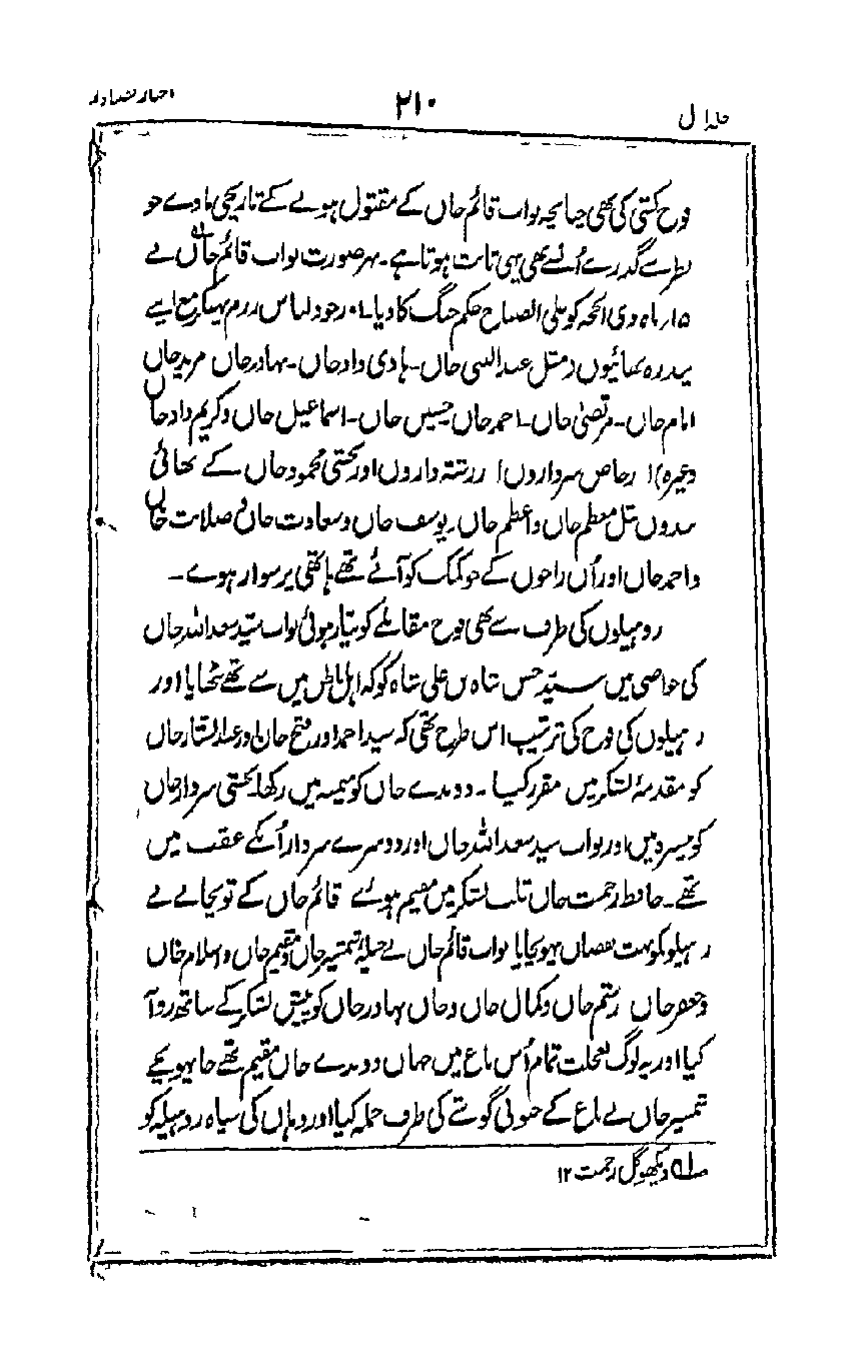 جلد اول
۲۱۰
اخبار الصنادید
فوج کشی کی تھی چنانچہ نواب قائم خاں کے مقتول ہونے کے تاریخی مادے جو
نظر سے گذرے اُنسے بھی یہی ثابت ہوتا ہے۔ بہر صورت نواب قائم خاں نے
۱۵؍ ماہ ذی الحجہ کو علی الصباح حکم جنگ کا دیا۔ اور خود لباس رزم پہنکر مع اپنے
پندرہ بھائیوں (مثل عبدالنبی خاں۔ ہادی داد خاں۔ بہادر خاں مرید خاں
امام خاں۔ مرتضیٰ خاں۔ احمد خاں حسین خاں۔ اسماعیل خاں و کریم داد خاں
وغیرہ) اور خاص سرداروں اور رشتہ داروں اور بخشی محمود خاں کے بھائی
بندوں مثل معظم خاں و اعظم خاں۔ یوسف خاں و سعادت خاں صلابت خاں
و احمد خاں اور اُن راجوں کے جو کمک کو آئے تھے ہاتھی پر سوار ہوے۔
روہیلوں کی طرف سے بھی فوج مقابلے کو تیار ہوئی نواب سید سعد اللہ خاں
کی خواصی میں سید حسن شاہ بن علی شاہ کو کہ اہل باطن میں سے تھے بٹھایا اور
رہیلوں کی فوج کی ترتیب اس طرح تھی کہ سید احمد اور فتح خاں اور عبدالستار خاں
کو مقدمۂ لشکر میں مقرر کیا۔ دوندے خاں کو میمنہ میں رکھا بخشی سردار خاں
کو میسرہ میں اور نواب سید سعد اللہ خاں اور دوسرے سردار اُنکے عقب میں
تھے۔ حافظ رحمت خاں قلب لشکر میں مقیم ہوئے قائم خاں کے توپخانے نے
رہیلو کو بہت نقصان پہونچایا نواب قائم خاں نے شمشیر خاں و مقیم خاں و اسلام خاں
و جعفر خاں رستم خاں و کمال خاں و خاں بہادر خاں کو پیش لشکر کے ساتھ روانہ
کیا اور یہ لوگ بعجلت تمام اُس باغ میں جہاں دوندے خاں مقیم تھے جا پہونچے
شمشیر خاں نے باغ کے جنوبی گوشے کی طرف حملہ کیا اور وہاں کی سپاہ روہیلہ کو
۱ دیکھو گل رحمت ۱۲